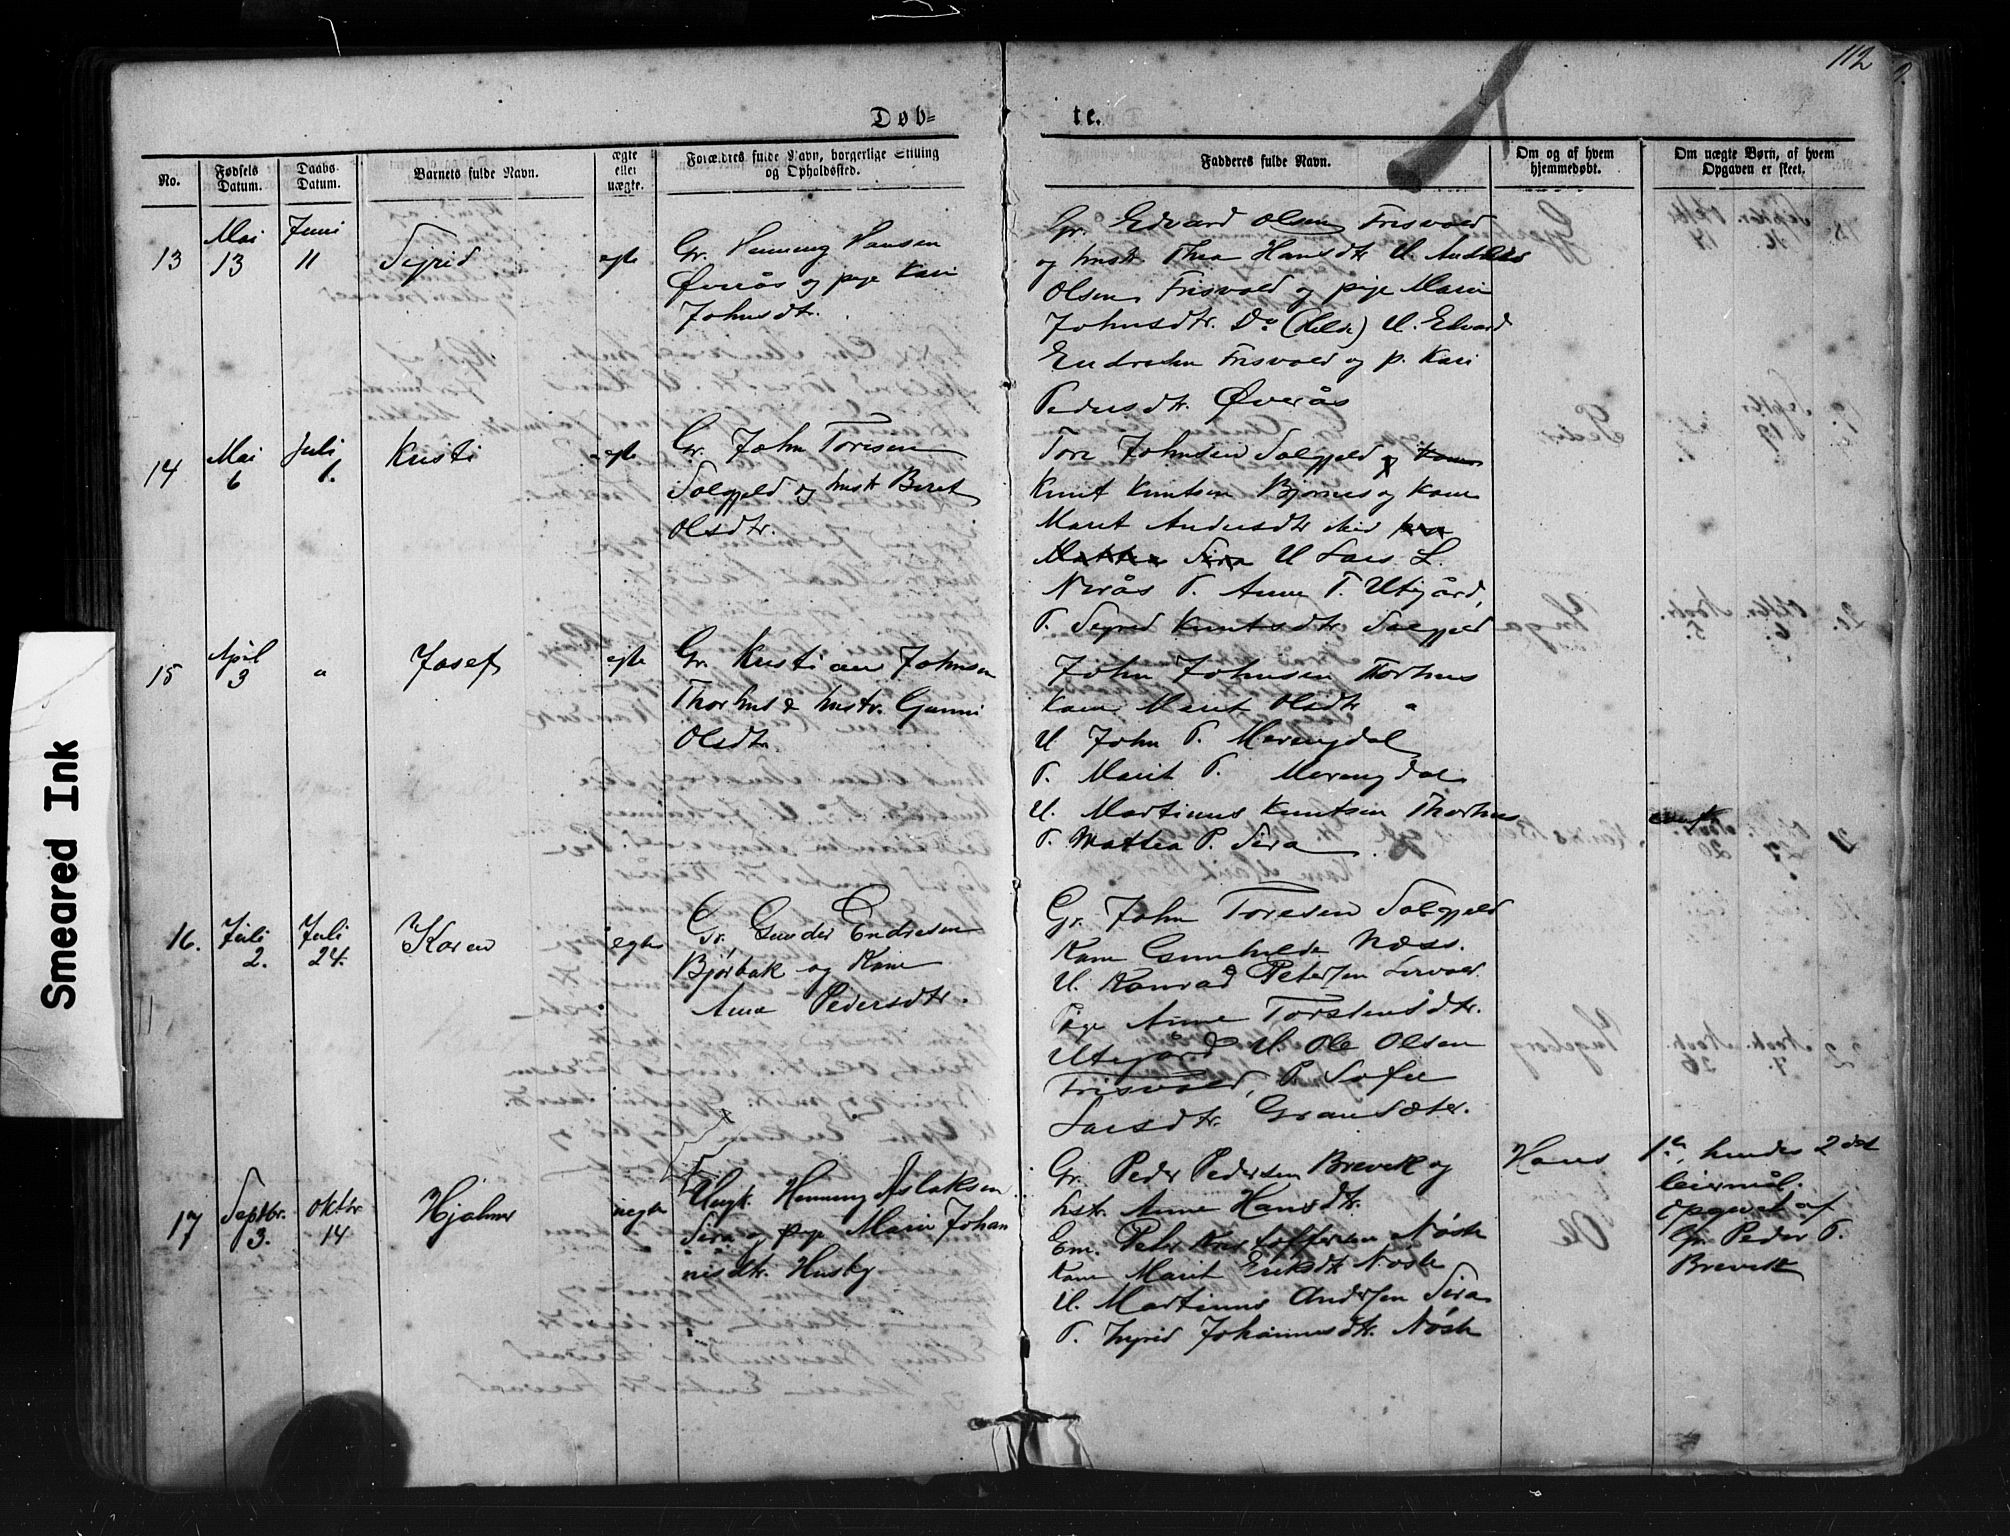 112
Døb-
te.
No.
Fødsels Datum.
Daabs Datum.
Barnets fulde Navn.
ægte eller uægte.
Forældres fulde Navn, borgerlige Stilling og Opholdssted.
Fadderes fulde Navn.
Om og af hvem hjemmedøbt.
Om uægte Børn, af hvem Opgaven er skeet.
13
Mai 13
Juni 11
Sigrid
egte
Gr. Henning Hansen
Øverås og pige Kari
Johnsdtr.
Gr. Edvard Olsen Frisvold
og hustr Thea Hansdtr U. Andreas
Olsen Frisvold og pige Marie
Johnsdtr. Do (Helde) U. Edvard
Endresen Frisvold og p. Kari
Pedersdtr. Øverås
14
Mai 6
Juli 1.
Kristi
egte
Gr. John Toresen
Solgjeld og hustr Beret
Olsdtr.
Tore Johnsen Solgjeld og
Knut Knutsen Bjørnes og Kone
Marit Andersdtr
Mattea Sira U Lars L.
Nerås P. Anne T. Utigård,
P. Sigrid Knutsdtr Solgjeld
15
April 3
"
Josef
egte
Gr. Kristian Johnsen
Thorhus & hustr. Gunni
Olsdtr.
John Johnsen Thorhus
Kone Marit Olsdtr "
U John P. Merengdal
P. Marit P. Merengdal
U. Martinus Knutsen Thorhus
P. Mattea P. Sira
16.
Juli 2.
Juli 24.
Karen
egte
Gr. Gunder Endresen
Bjørbak og Kone
Ane Pedersdtr.
Gr. John Toresen Solgjeld
Kone Gunhilde Næss.
U. Konrad Petersen
Pige Anne Torstensdtr.
Utegård U. Ole Olsen
Frisvold, P. Sofie
Larsdtr. Gransæter.
17
Septbr. 3.
Oktbr 14
Hjalmar
uegte
Ungk. Henning Aslaksen
Sira og pige Marie Johan
nisdtr. Husby
Gr. Peder Pedersen Brevik og
hstr. Anne Hansdtr.
Em. Peter Kristoffersen Nøste
Kone Marit Eriksdtr Nøste
U. Martinus Andersen Sira
P. Ingrid Johannesdtr. Nøste
Hans 1ste, hendes 2det
leiermål.
Opgivet af
Gr. Peder P.
Brevik
Smeared Ink